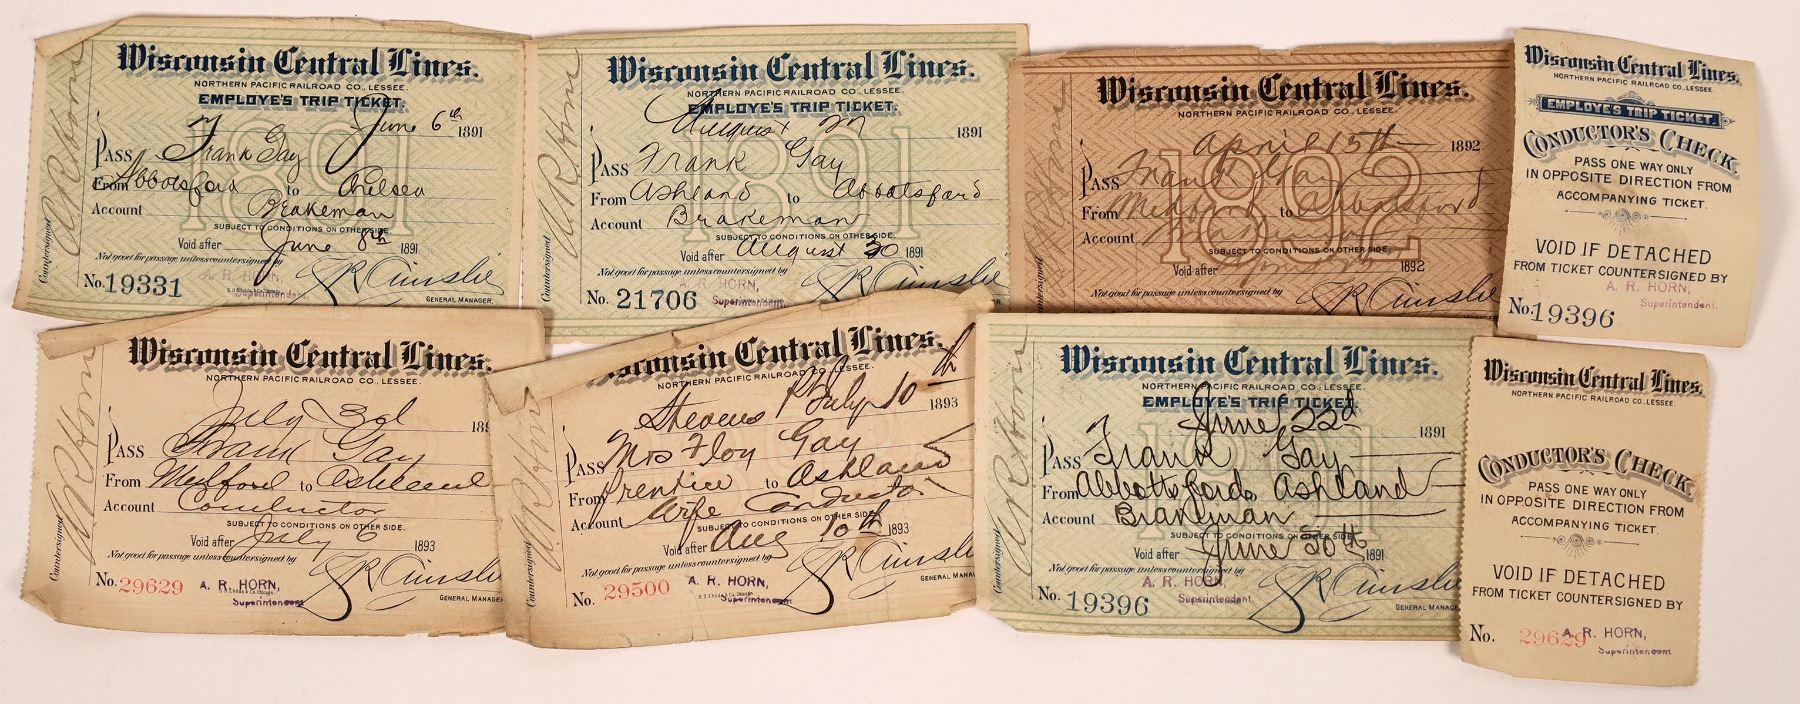 Wisconsin Central Lines.
NORTHERN PACIFIC RAILROAD CO., LESSEE.
EMPLOYE'S TRIP TICKET.
June 6th 1891
Pass Frank Gay
From Abbotsford to Chelsea
Account Brakeman
SUBJECT TO CONDITIONS ON OTHER SIDE.
Void after June 8th 1891
Not good for passage unless countersigned by
A. R. HORN,
Superintendent.
No. 19331
GENERAL MANAGER.
Countersigned
A R Horn
Wisconsin Central Lines.
NORTHERN PACIFIC RAILROAD CO., LESSEE.
EMPLOYE'S TRIP TICKET.
August 27 1891
Pass Frank Gay
From Ashland to Abbotsford
Account Brakeman
SUBJECT TO CONDITIONS ON OTHER SIDE.
Void after August 30 1891
Not good for passage unless countersigned by
A. R. HORN,
Superintendent.
No. 21706
GENERAL MANAGER.
Countersigned
A R Horn
Wisconsin Central Lines.
NORTHERN PACIFIC RAILROAD CO., LESSEE.
April 15th 1892
Pass Frank Gay
From Medford to Abbotsford
Account
SUBJECT TO CONDITIONS ON OTHER SIDE.
Void after 1892
Not good for passage unless countersigned by
1892
Countersigned
Wisconsin Central Lines.
NORTHERN PACIFIC RAILROAD CO., LESSEE.
EMPLOYE'S TRIP TICKET.
CONDUCTOR'S CHECK
PASS ONE WAY ONLY
IN OPPOSITE DIRECTION FROM
ACCOMPANYING TICKET.
VOID IF DETACHED
FROM TICKET COUNTERSIGNED BY
A. R. HORN,
Superintendent.
No. 19396
Wisconsin Central Lines.
NORTHERN PACIFIC RAILROAD CO., LESSEE.
July 3d 189
Pass Frank Gay
From Medford to Ashland
Account Conductor
SUBJECT TO CONDITIONS ON OTHER SIDE.
Void after July 6 1893
Not good for passage unless countersigned by
No. 29629 A. R. HORN,
Superintendent
GENERAL MANAGER
Countersigned
A R Horn
Wisconsin Central Lines.
NORTHERN PACIFIC RAILROAD CO., LESSEE.
Stevens Pt July 10th 1893
Pass Mrs Floy Gay
From Prentice to Ashland
Account Wife Conductor
SUBJECT TO CONDITIONS ON OTHER SIDE.
Void after Aug 10th 1893
Not good for passage unless countersigned by
No. 29500 A. R. HORN,
Superintendent
GENERAL MANA
Countersigned
A R Horn
Wisconsin Central Lines.
NORTHERN PACIFIC RAILROAD CO., LESSEE.
EMPLOYE'S TRIP TICKET.
June 22d 1891
Pass Frank Gay
From Abbottsford to Ashland
Account
SUBJECT TO CONDITIONS ON OTHER SIDE.
Void after June 30th 1891
Not good for passage unless countersigned by
A. R. HORN,
Superintendent.
No. 19396
GENERAL MANAGE
Countersigned
A R Horn
Wisconsin Central Lines.
NORTHERN PACIFIC RAILROAD CO., LESSEE.
CONDUCTOR'S CHECK
PASS ONE WAY ONLY
IN OPPOSITE DIRECTION FROM
ACCOMPANYING TICKET.
VOID IF DETACHED
FROM TICKET COUNTERSIGNED BY
A. R. HORN,
No. 29629
Superintendent